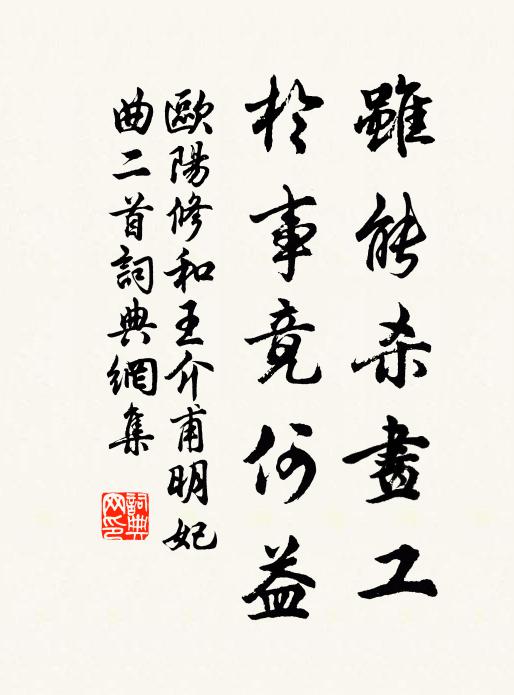 雖能杀畫工
於事竟何益
歐陽修和王介甫明妃
曲二首詞典網集
詞典
网印